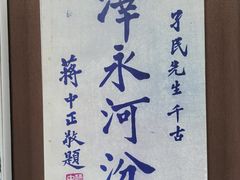 子民先生千古
澤永河汾
蔣中正敬題